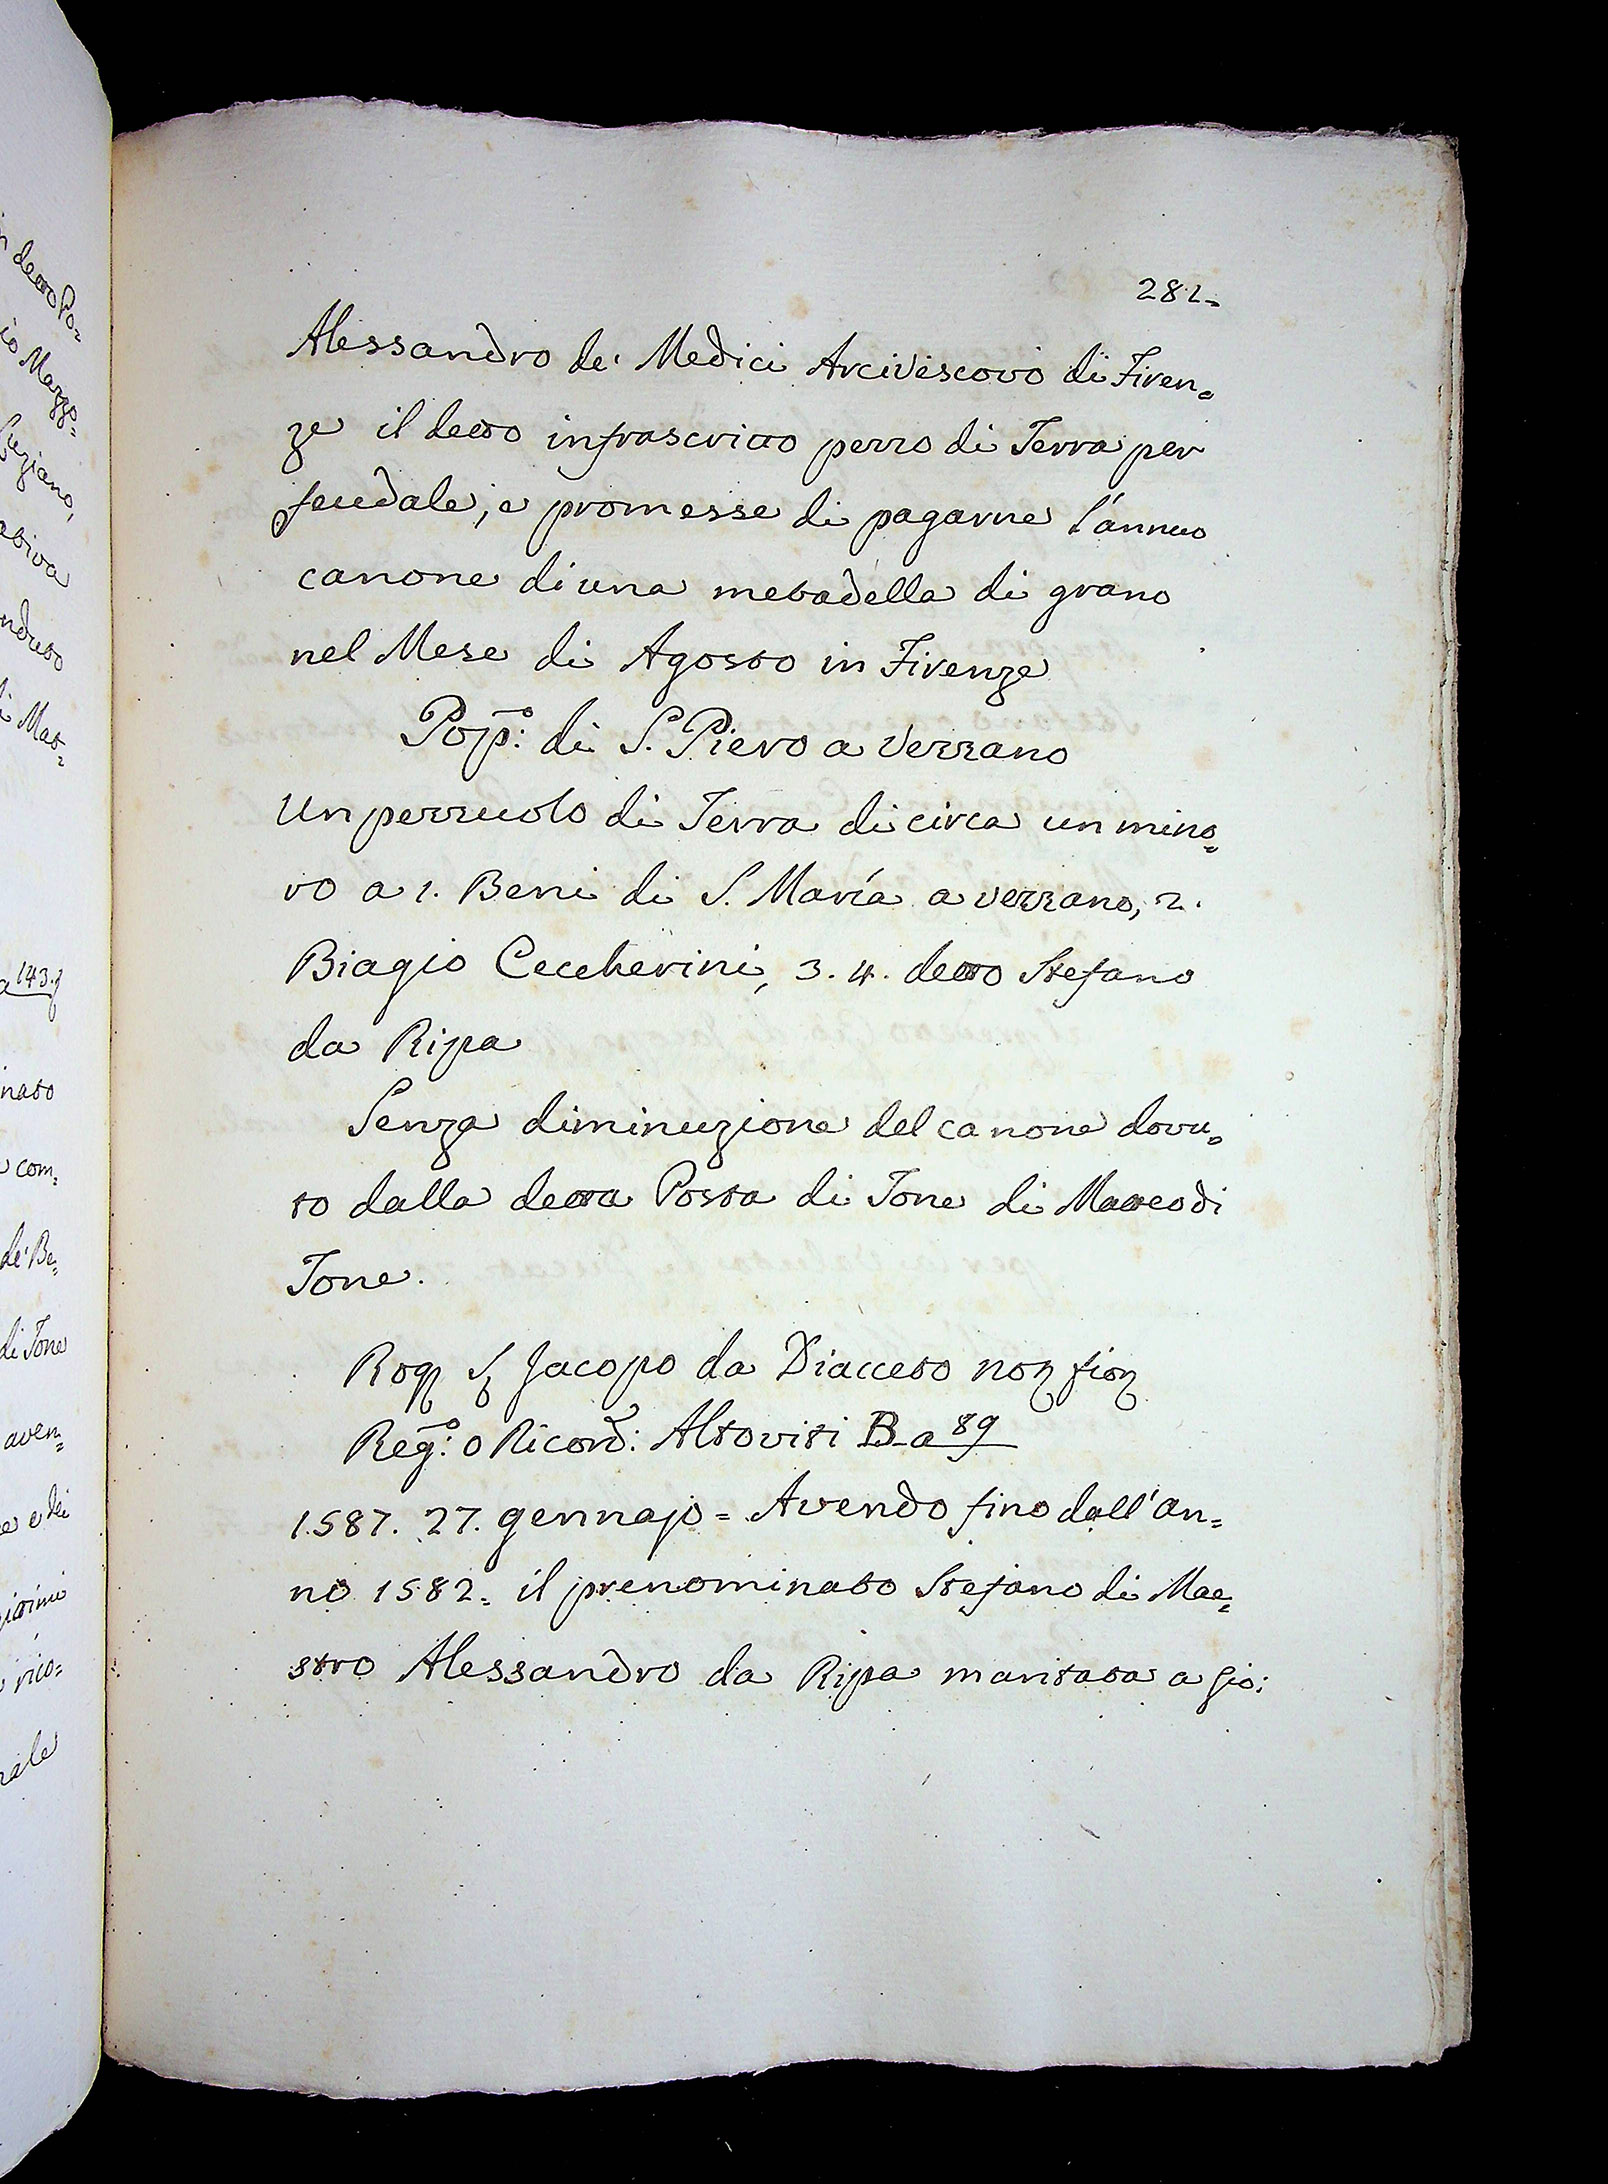 282=
Alessandro de' Medici Arcivescovo di Firen=
ze il detto infrascritto pezzo di Terra per
feudale, e promesse di pagarne l'annuo
canone di una metadella di grano
nel Mese di Agosto in Firenze
Pop:º di S. Piero a Vezzano
Un pezzuolo di Terra di circa un mino=
ro a 1. Beni di S. María a vezzano, 2.
Biagio Ceccherini, 3. 4. detto Stefano
da Ripa
Senza diminuzione del canone dovu=
to dalla detta Posta di Tone di Matteo di
Tone.
Rog Jacopo da Diacceto
Reg:º o Ricord: Altoviti B a 89
1587. 27. gennajo = Avendo fino dall'an=
no 1582= il prenominato Stefano di Mae=
stro Alessandro da Ripa maritata a Gio:
in detto Po=
a 143.
nato
com=
de' Be=
di Tone
aven=
e lei
rico=